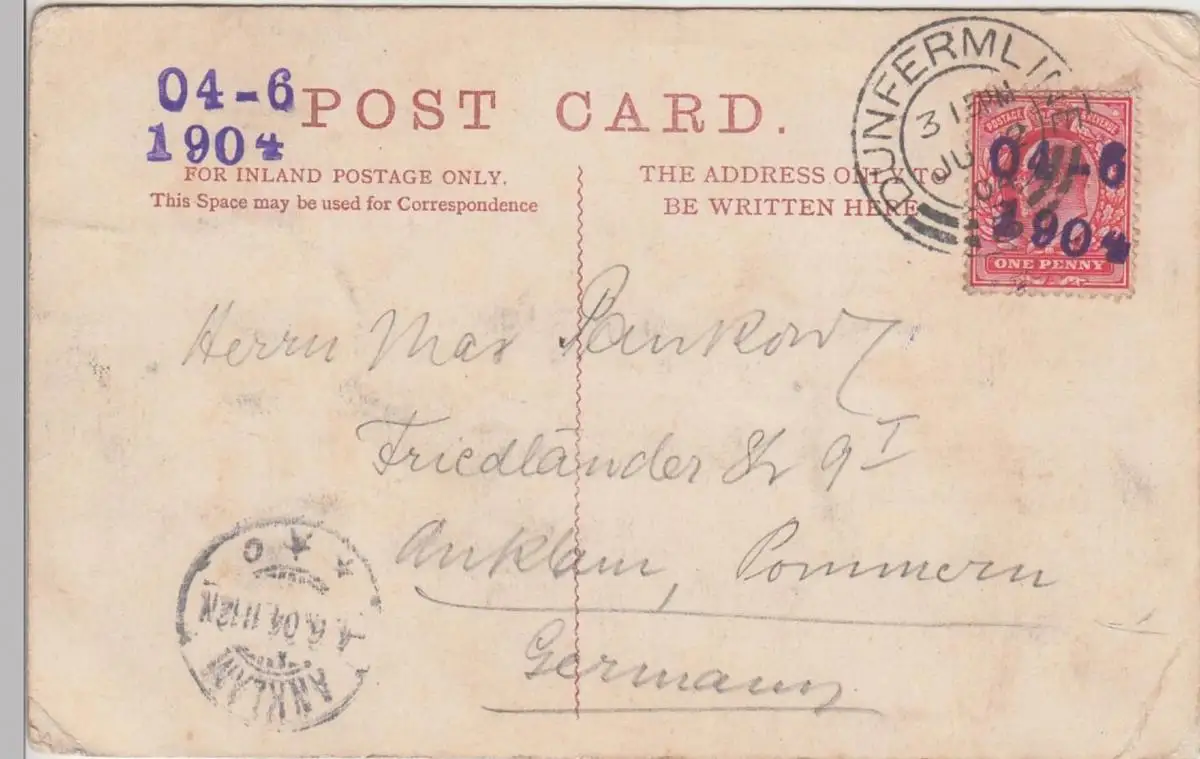 04-6
1904
POST CARD.
FOR INLAND POSTAGE ONLY.
This Space may be used for Correspondence
THE ADDRESS ONLY TO
BE WRITTEN HERE
DUNFERMLINE
3 15 PM
JU 2
04
POSTAGE REVENUE
04-6
1904
ONE PENNY
Herrn Max Pankow
Friedländer Str 9 I
Anklam, Pommern
Germany
ANKLAM
4.6.04 11-12 N